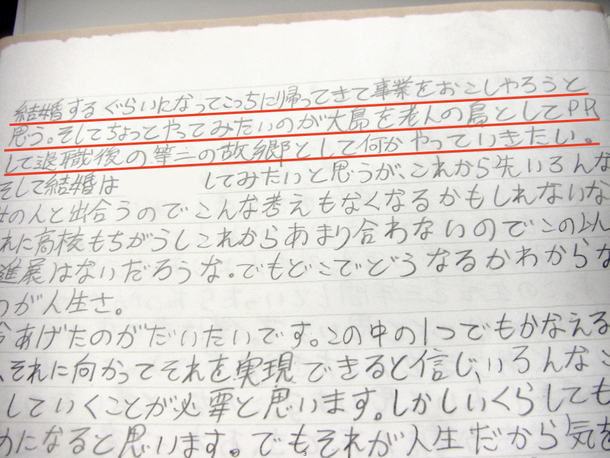 結婚するぐらいになってこっちに帰ってきて事業をおこしやろうと
思う。そしてちょっとやってみたいのが大島を老人の島としてPR
して退職後の第二の故郷として何かやっていきたい。
そして結婚は してみたいと思うが、これから先いろんな
の人と出合うのでこんな考えもなくなるかもしれないな
れに高校もちがうしこれからあまり合わないのでこの以
進展はないだろうな。でもどこでどうなるかわからな
が人生さ。
今あげたのがだいたいです。この中の1つでもかなえる
、それに向かってそれを実現できると信じ、いろんなこ
していくことが必要と思います。しかしいくらしても
になると思います。でもそれが人生だから気を